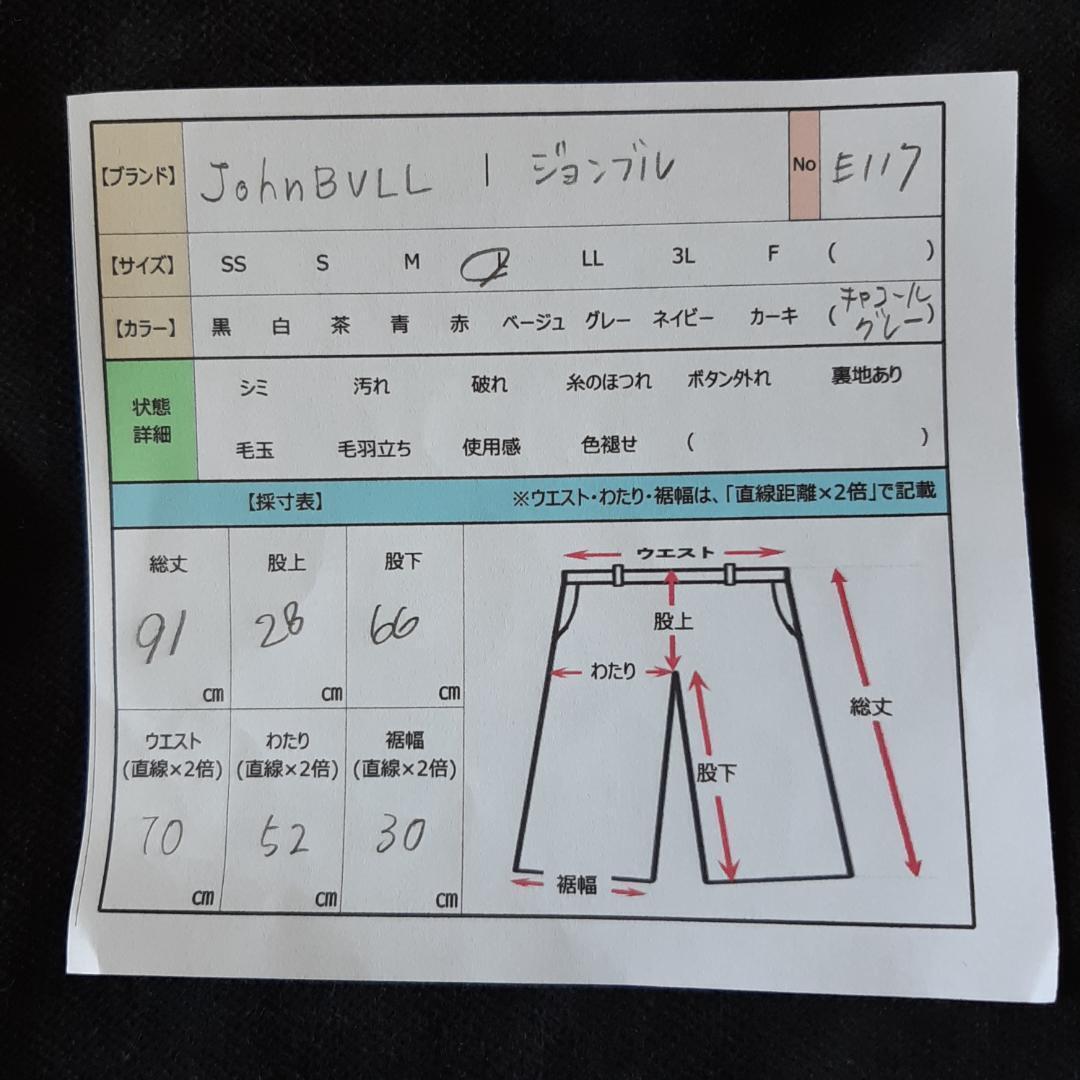 【ブランド】 JohnBULL | ジョンブル No E117
【サイズ】 SS S M L LL 3L F ( )
【カラー】 黒 白 茶 青 赤 ベージュ グレー ネイビー カーキ (チャコールグレー)
状態詳細
シミ 汚れ 破れ 糸のほつれ ボタン外れ 裏地あり
毛玉 毛羽立ち 使用感 色褪せ ( )
【採寸表】 ※ウエスト・わたり・裾幅は、「直線距離×2倍」で記載
総丈 股上 股下
91 28 66
cm cm cm
ウエスト わたり 裾幅
(直線×2倍) (直線×2倍) (直線×2倍)
70 52 30
cm cm cm
ウエスト
股上
わたり
総丈
股下
裾幅